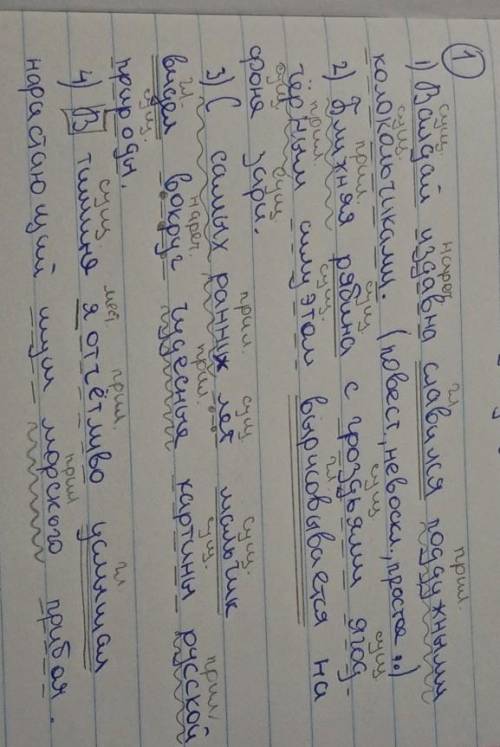 1
сущ. нареч. гл прил.
1) Валдай издавна славился поддужными
сущ.
колокольчиками. (повест., невоскл., простое ..)
прил. сущ. сущ сущ
2) Ближняя рябина с гроздьями ягод-
прил сущ. гл
чёрным силуэтом вырисовывается на
сущ сущ.
фоне зари.
прил. сущ сущ.
3) С самых ранних лет мальчик
гл. нареч. прил. сущ. прил.
видел вокруг чудесные картины русской
сущ.
природы.
сущ. мест. прил. гл
4) В тишине я отчётливо услышал
прил
нарастающий шум морского прибоя.